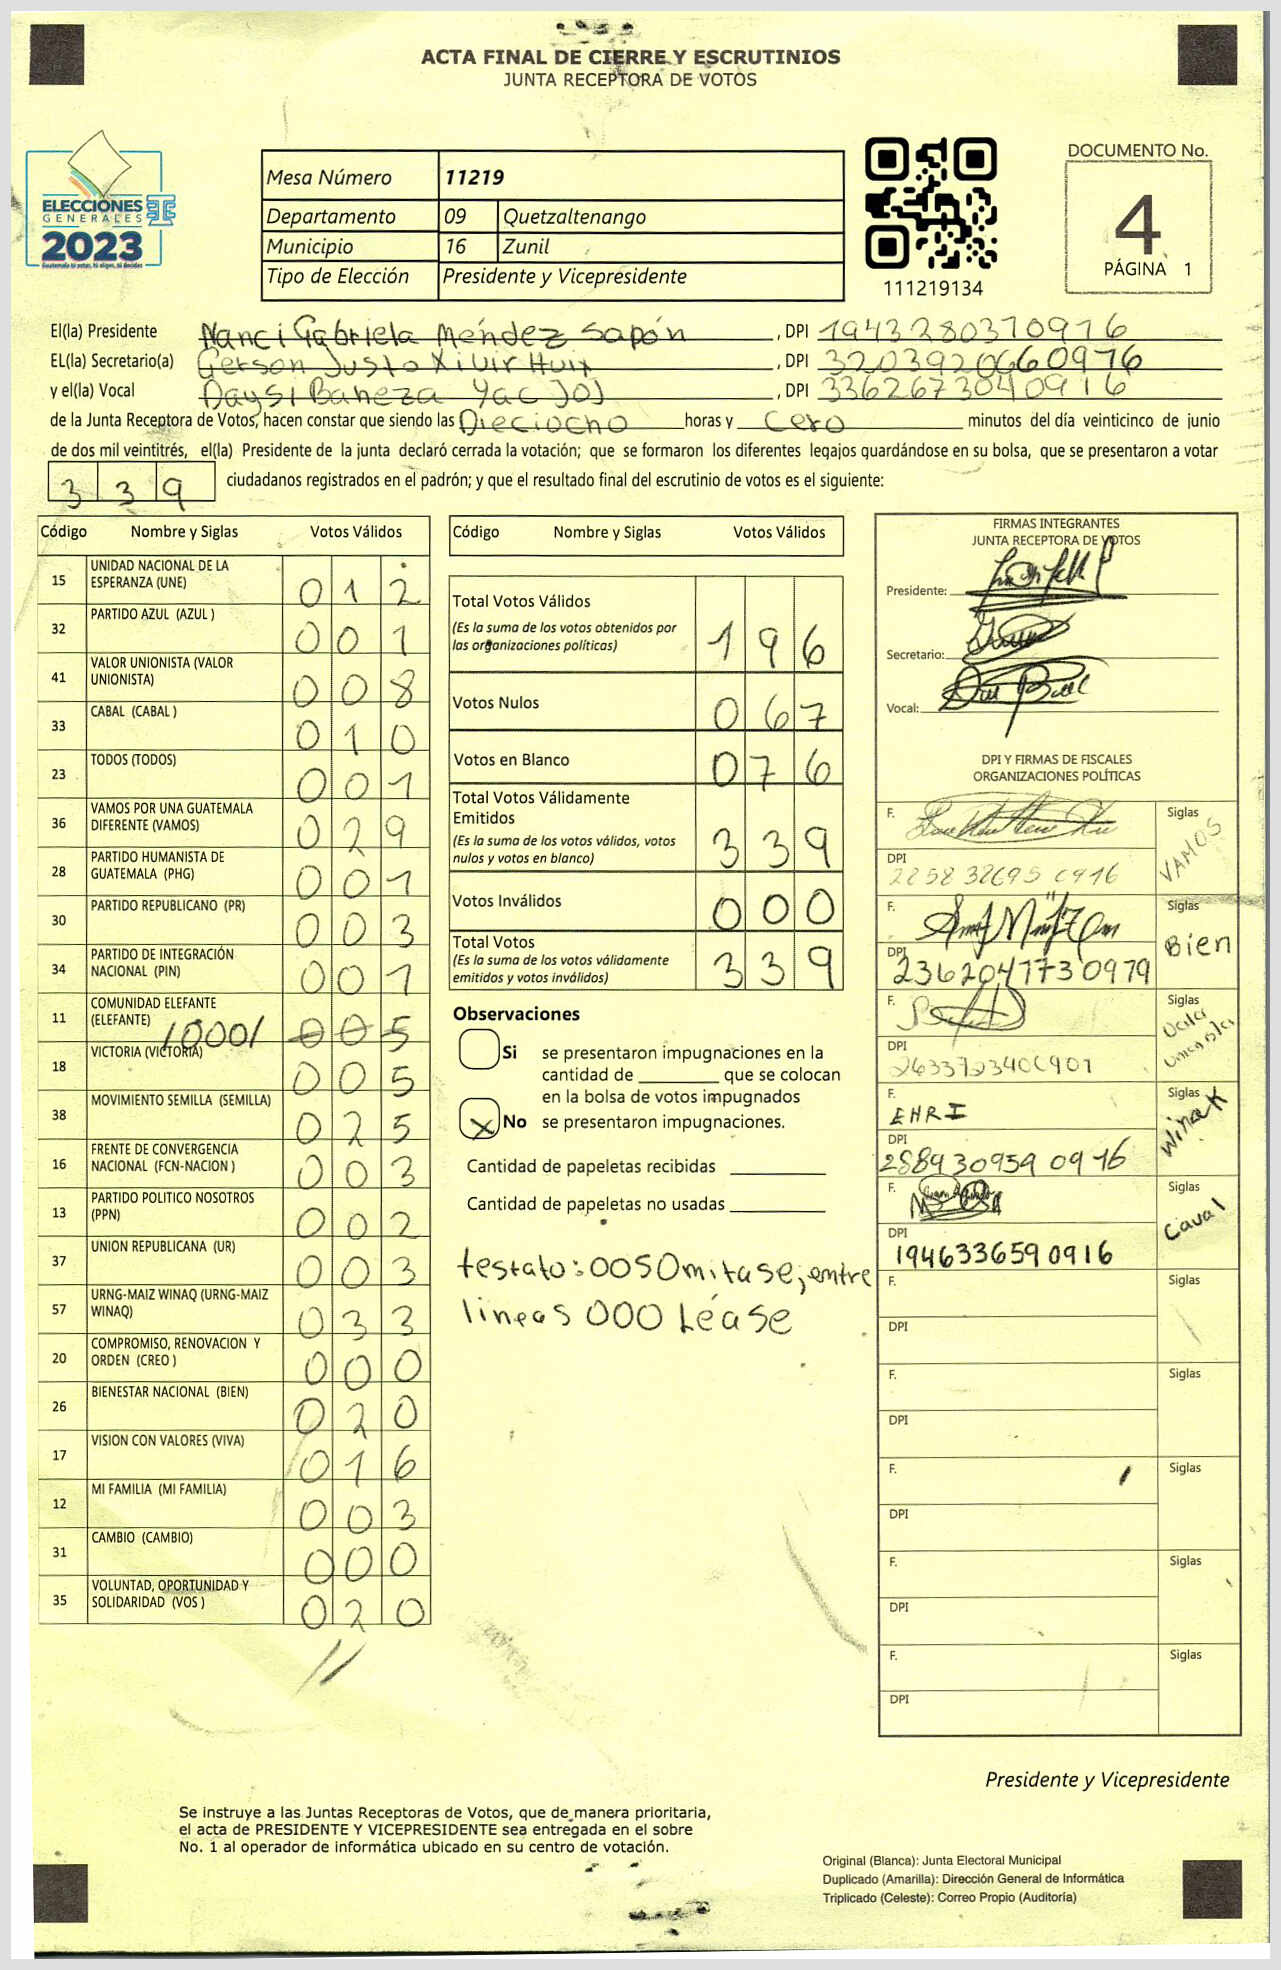 ACTA FINAL DE CIERRE Y ESCRUTINIOS
JUNTA RECEPTORA DE VOTOS
ELECCIONES
GENERALES
2023
Mesa Número 11219
Departamento 09 Quetzaltenango
Municipio 16 Zunil
Tipo de Elección Presidente y Vicepresidente
111219134
DOCUMENTO No.
4
PÁGINA 1
El(la) Presidente Nanci Gabriela Méndez Sapón, DPI 1943280370916
EL(la) Secretario(a) Gerson Justo Xivir Huix, DPI 3203920660976
y el(la) Vocal Daysi Baneza Yac Joj, DPI 3362673040916
de la Junta Receptora de Votos, hacen constar que siendo las Dieciocho horas y Cero minutos del día veinticinco de junio
de dos mil veintitrés, el(la) Presidente de la junta declaró cerrada la votación; que se formaron los diferentes legajos guardándose en su bolsa, que se presentaron a votar
339 ciudadanos registrados en el padrón; y que el resultado final del escrutinio de votos es el siguiente:
Código Nombre y Siglas Votos Válidos
15 UNIDAD NACIONAL DE LA ESPERANZA (UNE) 012
32 PARTIDO AZUL (AZUL ) 001
41 VALOR UNIONISTA (VALOR UNIONISTA) 008
33 CABAL (CABAL ) 010
23 TODOS (TODOS) 001
36 VAMOS POR UNA GUATEMALA DIFERENTE (VAMOS) 029
28 PARTIDO HUMANISTA DE GUATEMALA (PHG) 001
30 PARTIDO REPUBLICANO (PR) 003
34 PARTIDO DE INTEGRACIÓN NACIONAL (PIN) 001
11 COMUNIDAD ELEFANTE (ELEFANTE) /000/ 005
18 VICTORIA (VICTORIA) 005
38 MOVIMIENTO SEMILLA (SEMILLA) 025
16 FRENTE DE CONVERGENCIA NACIONAL (FCN-NACION ) 003
13 PARTIDO POLITICO NOSOTROS (PPN) 002
37 UNION REPUBLICANA (UR) 003
57 URNG-MAIZ WINAQ (URNG-MAIZ WINAQ) 033
20 COMPROMISO, RENOVACION Y ORDEN (CREO ) 000
26 BIENESTAR NACIONAL (BIEN) 020
17 VISION CON VALORES (VIVA) 016
12 MI FAMILIA (MI FAMILIA) 003
31 CAMBIO (CAMBIO) 000
35 VOLUNTAD, OPORTUNIDAD Y SOLIDARIDAD (VOS ) 020
Código Nombre y Siglas Votos Válidos
Total Votos Válidos 196
(Es la suma de los votos obtenidos por
las organizaciones políticas)
Votos Nulos 067
Votos en Blanco 076
Total Votos Válidamente
Emitidos 339
(Es la suma de los votos válidos, votos
nulos y votos en blanco)
Votos Inválidos 000
Total Votos 339
(Es la suma de los votos válidamente
emitidos y votos inválidos)
Observaciones
Si se presentaron impugnaciones en la
cantidad de ________ que se colocan
en la bolsa de votos impugnados
X No se presentaron impugnaciones.
Cantidad de papeletas recibidas
Cantidad de papeletas no usadas
testato: 005 Omitase, entre
lineas 000 Léase
FIRMAS INTEGRANTES
JUNTA RECEPTORA DE VOTOS
Presidente:
Secretario:
Vocal:
DPI Y FIRMAS DE FISCALES
ORGANIZACIONES POLÍTICAS
F. Siglas VAMOS
DPI 2258 32695 0916
F. Siglas Bien
DPI 2362047730979
F. Siglas
DPI 2633723400901
F. EHRI Siglas Winak
DPI 2889309590916
F. Siglas Caval
DPI 1946336590916
F. Siglas
DPI
F. Siglas
DPI
F. Siglas
DPI
F. Siglas
DPI
F. Siglas
DPI
Presidente y Vicepresidente
Se instruye a las Juntas Receptoras de Votos, que de manera prioritaria,
el acta de PRESIDENTE Y VICEPRESIDENTE sea entregada en el sobre
No. 1 al operador de informática ubicado en su centro de votación.
Original (Blanca): Junta Electoral Municipal
Duplicado (Amarilla): Dirección General de Informática
Triplicado (Celeste): Correo Propio (Auditoría)